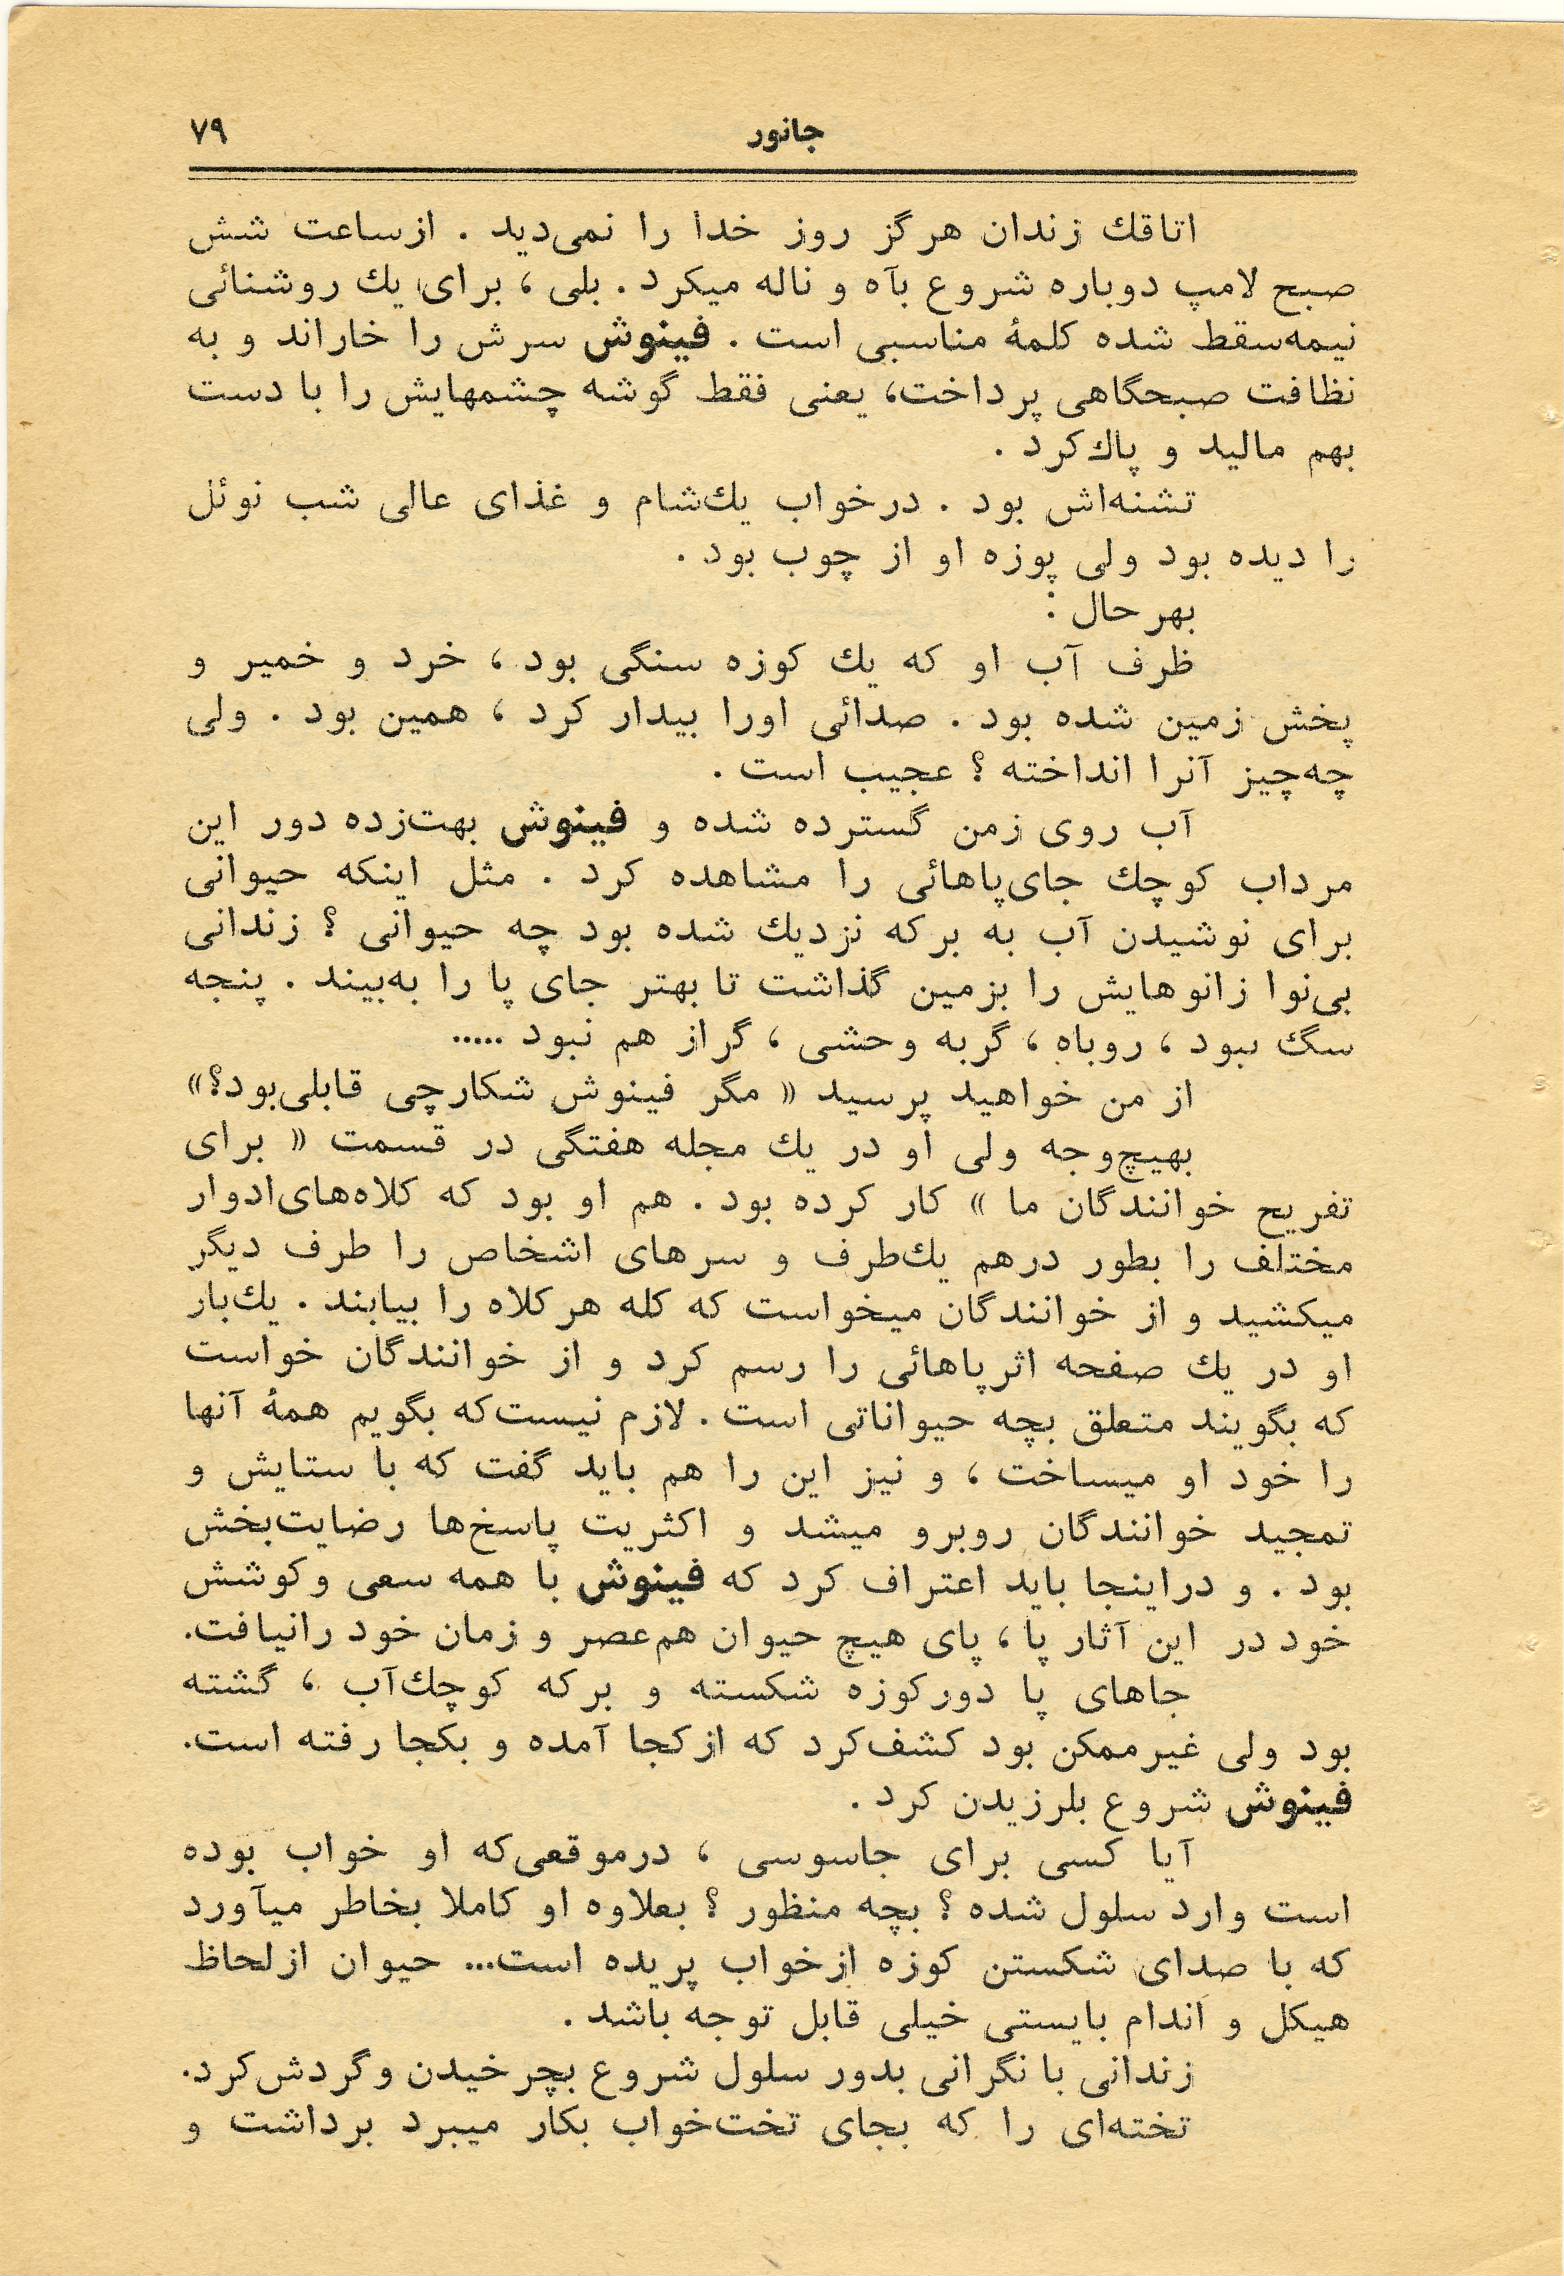 جانور ۷۹
اتاقك زندان هرگز روز خدا را نمی‌دید . ازساعت شش
صبح لامپ دوباره شروع بآه و ناله میکرد . بلی ، برای یك روشنائی
نیمه‌سقط شده کلمهٔ مناسبی است . فینوش سرش را خاراند و به
نظافت صبحگاهی پرداخت، یعنی فقط گوشه چشمهایش را با دست
بهم مالید و پاك‌کرد .
تشنه‌اش بود . درخواب یك‌شام و غذای عالی شب نوئل
را دیده بود ولی پوزه او از چوب بود .
بهرحال :
ظرف آب او که یك کوزه سنگی بود ، خرد و خمیر و
پخش زمین شده بود . صدائی اورا بیدار کرد ، همین بود . ولی
چه‌چیز آنرا انداخته ؟ عجیب است .
آب روی زمن گسترده شده و فینوش بهت‌زده دور این
مرداب کوچك جای‌پاهائی را مشاهده کرد . مثل اینکه حیوانی
برای نوشیدن آب به برکه نزدیك شده بود چه حیوانی ؟ زندانی
بی‌نوا زانوهایش را بزمین گذاشت تا بهتر جای پا را به‌بیند . پنجه
سگ نبود ، روباه ، گربه وحشی ، گراز هم نبود .....
از من خواهید پرسید « مگر فینوش شکارچی قابلی‌بود؟»
بهیچ‌وجه ولی او در یك مجله هفتگی در قسمت « برای
تفریح خوانندگان ما » کار کرده بود . هم او بود که کلاه‌های‌ادوار
مختلف را بطور درهم یك‌طرف و سرهای اشخاص را طرف دیگر
میکشید و از خوانندگان میخواست که کله هرکلاه را بیابند . یك‌بار
او در یك صفحه اثرپاهائی را رسم کرد و از خوانندگان خواست
که بگویند متعلق بچه حیواناتی است . لازم نیست‌که بگویم همهٔ آنها
را خود او میساخت ، و نیز این را هم باید گفت که با ستایش و
تمجید خوانندگان روبرو میشد و اکثریت پاسخ‌ها رضایت‌بخش
بود . و دراینجا باید اعتراف کرد که فینوش با همه سعی وکوشش
خود در این آثار پا ، پای هیچ حیوان هم‌عصر و زمان خود رانیافت.
جاهای پا دورکوزه شکسته و برکه کوچك‌آب ، گشته
بود ولی غیرممکن بود کشف‌کرد که ازکجا آمده و بکجا رفته است.
فینوش شروع بلرزیدن کرد .
آیا کسی برای جاسوسی ، درموقعی‌که او خواب بوده
است وارد سلول شده ؟ بچه منظور ؟ بعلاوه او کاملا بخاطر میآورد
که با صدای شکستن کوزه ازخواب پریده است... حیوان ازلحاظ
هیکل و اندام بایستی خیلی قابل توجه باشد .
زندانی با نگرانی بدور سلول شروع بچرخیدن وگردش‌کرد.
تخته‌ای را که بجای تخت‌خواب بکار میبرد برداشت و